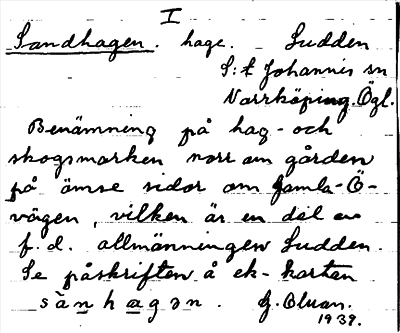 I
Sandhagen. hage. Sudden
S:t Johannis sn
Norrköping. Ögl.
Benämning på hag- och
skogsmarken norr om gården
på ömse sidor om Gamla-Ö-
vägen, vilken är en del av
f.d. allmänningen Sudden.
Se påskriften å ek-kartan
sànhagən. G. 
1939.